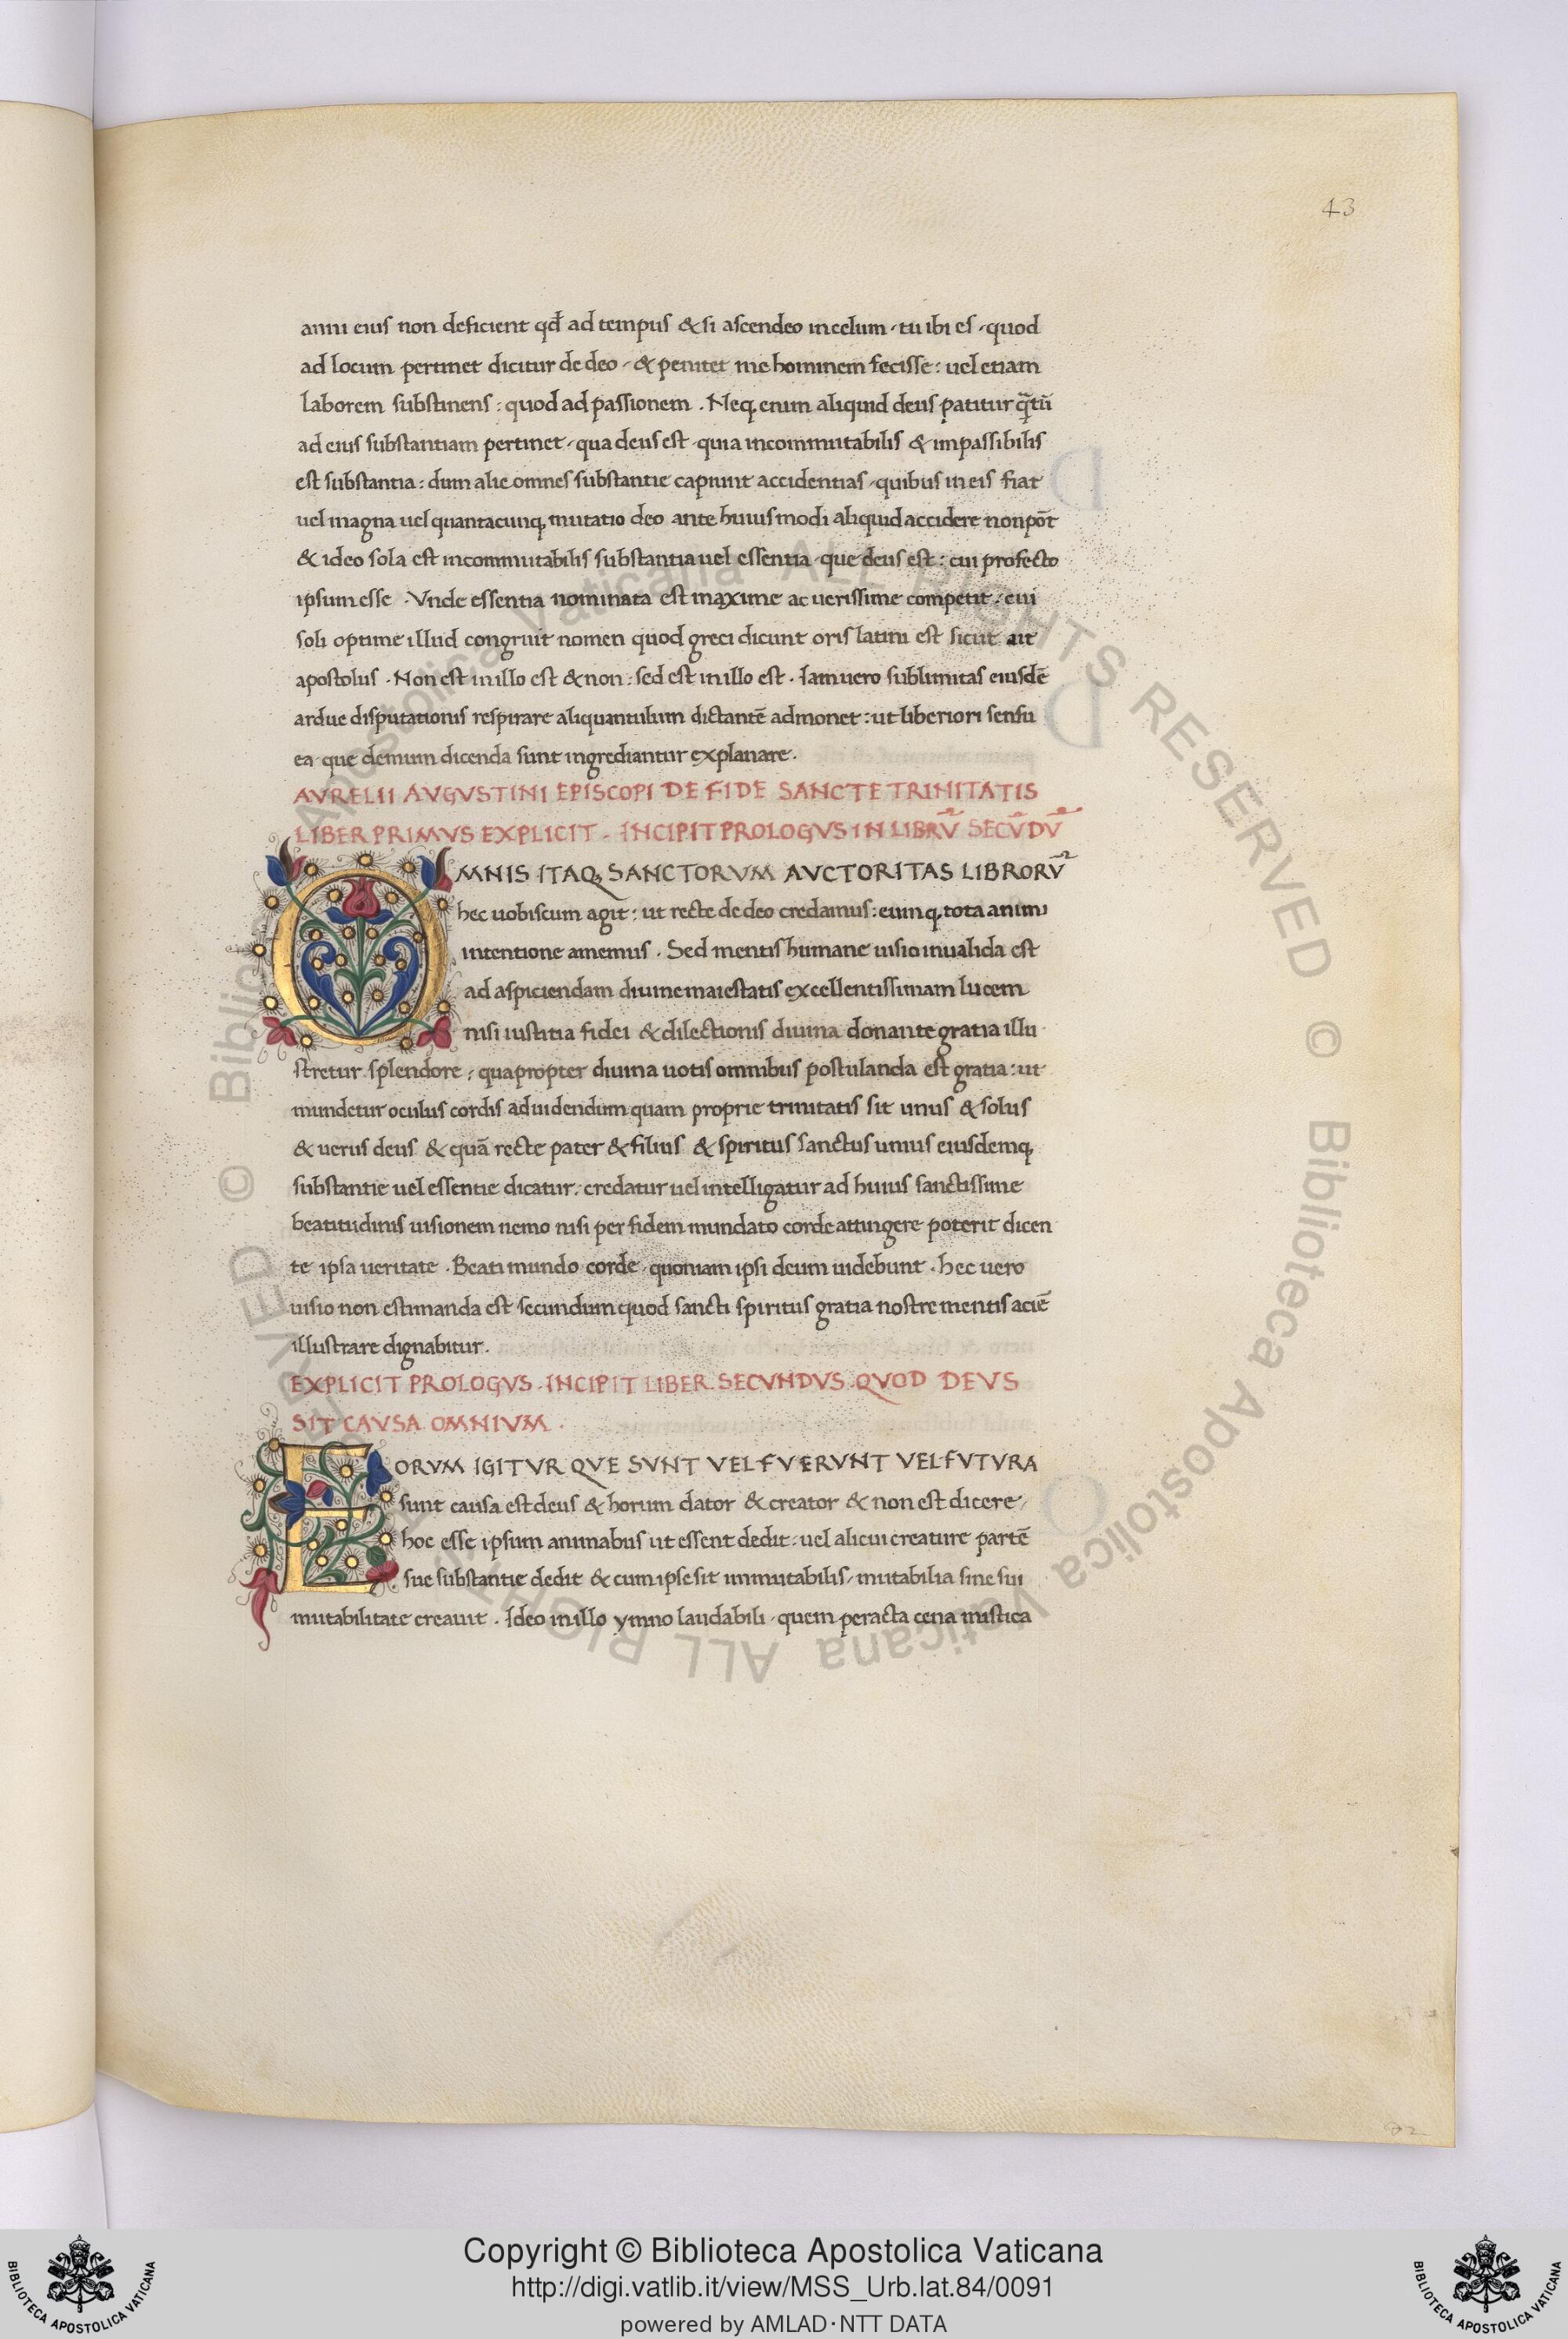 43
anni eius non deficient qđ ad tempus & si ascendeo in celum · tu ibi es · quod
ad locum pertinet dicitur de deo · & penitet me hominem fecisse : uel etiam
laborem substinens : quod ad passionem . Neq, enim aliquid deus patitur q̃tũ
ad eius substantiam pertinet · qua deus est · quia incommutabilis & impassibilis
est substantia : dum alie omnes substantie capiunt accidentias · quibus in eis fiat
uel magna uel quantacunq, mutatio deo ante huiusmodi aliquid accidere non põt
& ideo sola est incommutabilis substantia uel essentia · que deus est : cui profecto
ipsum esse . Vnde essentia nominata est maxime ac uerissime competit : cui
soli optime illud congruit nomen quod greci dicunt oris latini est sicut ait
apostolus . Non est in illo est & non : sed est in illo est . Iam uero sublimitas eiusdē
ardue disputationis respirare aliquantulum dictantē admonet : ut liberiori sensu
ea que demum dicenda sunt ingrediantur explanare .
AVRELII AVGVSTINI EPISCOPI DE FIDE SANCTE TRINITATIS
LIBER PRIMVS EXPLICIT . INCIPIT PROLOGVS IN LIBRV̄ SECV̄DV̄
OMNIS ITAQ, SANCTORVM AVCTORITAS LIBRORV̄
hec uobiscum agit : ut recte de deo credamus : eumq, tota animi
intentione amemus . Sed mentis humane uisio inualida est
ad aspiciendam diuine maiestatis excellentissimam lucem
nisi iustitia fidei & dilectionis diuina donante gratia illu
stretur splendore : quapropter diuina uotis omnibus postulanda est gratia : ut
mundetur oculus cordis ad uidendum quam proprie trinitatis sit unus & solus
& uerus deus & quā recte pater & filius & spiritus sanctus unius eiusdemq,
substantie uel essentie dicatur : credatur uel intelligatur ad huius sanctissime
beatitudinis uisionem nemo nisi per fidem mundato corde attingere poterit dicen
te ipsa ueritate . Beati mundo corde · quoniam ipsi deum uidebunt . hec uero
uisio non estimanda est secundum quod sancti spiritus gratia nostre mentis aciē
illustrare dignabitur .
EXPLICIT PROLOGVS . INCIPIT LIBER SECVNDVS . QVOD DEVS
SIT CAVSA OMNIVM .
EORVM IGITVR QVE SVNT VEL FVERVNT VEL FVTVRA
sunt causa est deus & horum dator & creator & non est dicere ·
hoc esse ipsum animabus ut essent dedit : uel alicui creature partē
sue substantie dedit & cum ipse sit immutabilis · mutabilia sine sui
mutabilitate creauit . Ideo in illo ymno laudabili · quem peracta cena mistica
Biblioteca Apostolica Vaticana ALL RIGHTS RESERVED ©
Biblioteca Apostolica Vaticana ALL RIGHTS RESERVED ©
Copyright © Biblioteca Apostolica Vaticana
http://digi.vatlib.it/view/MSS_Urb.lat.84/0091
powered by AMLAD·NTT DATA
BIBLIOTECA APOSTOLICA VATICANA
BIBLIOTECA APOSTOLICA VATICANA